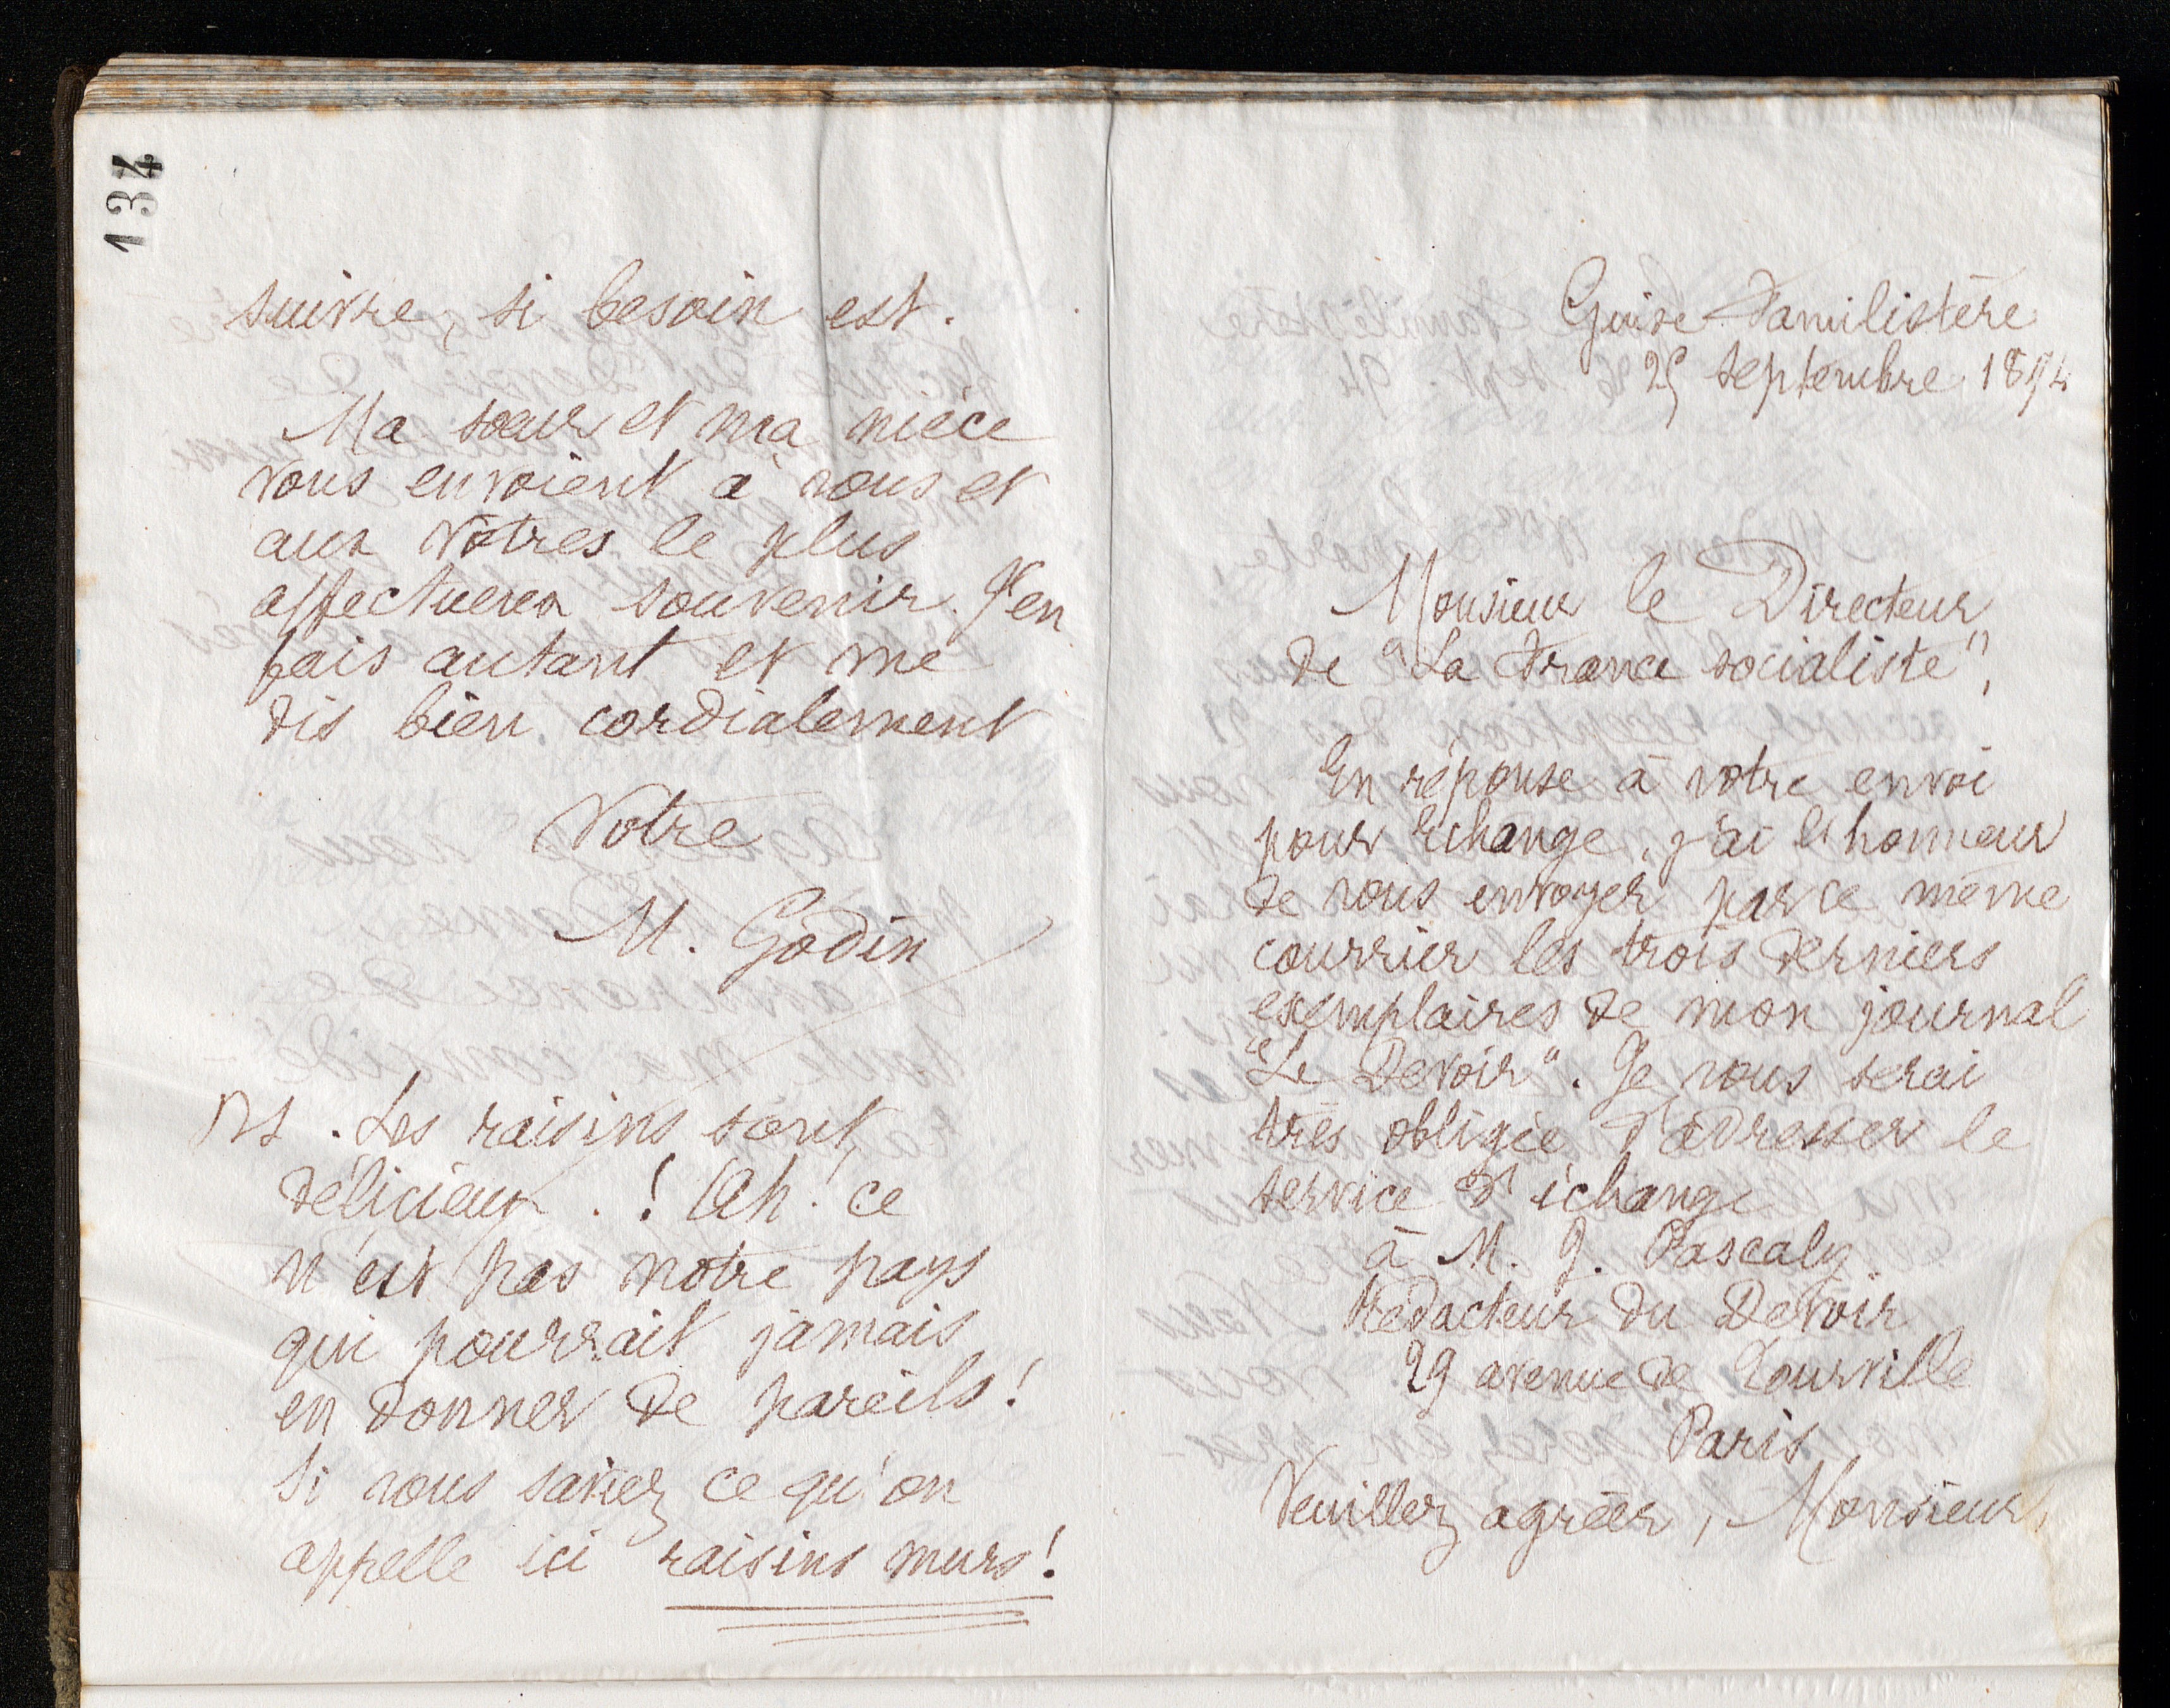 134
suivre, si besoin est.
Ma sœur et ma nièce
vous envoient à vous et
aux vôtres le plus
affectueux souvenir. J'en
fais autant et me
dis bien cordialement
Votre
M. Godin
PS. Les raisins sont
délicieux.! Ah! ce
n'est pas notre pays
qui pourrait jamais
en donner de pareils!
Si vous saviez ce qu'on
appelle ici raisins murs!
Guise Familistère
25 septembre 1894
Monsieur le Directeur
de "La France socialiste",
En réponse à votre envoi
pour échange, j'ai l'honneur
de vous envoyer par ce même
courrier les trois derniers
exemplaires de mon journal
"Le Devoir". Je vous serai
très obligée d'adresser le
service d'échange
à M. J. Pascaly
Rédacteur du Devoir
29 avenue de Tourville
Paris
Veuillez agréer, Monsieur,